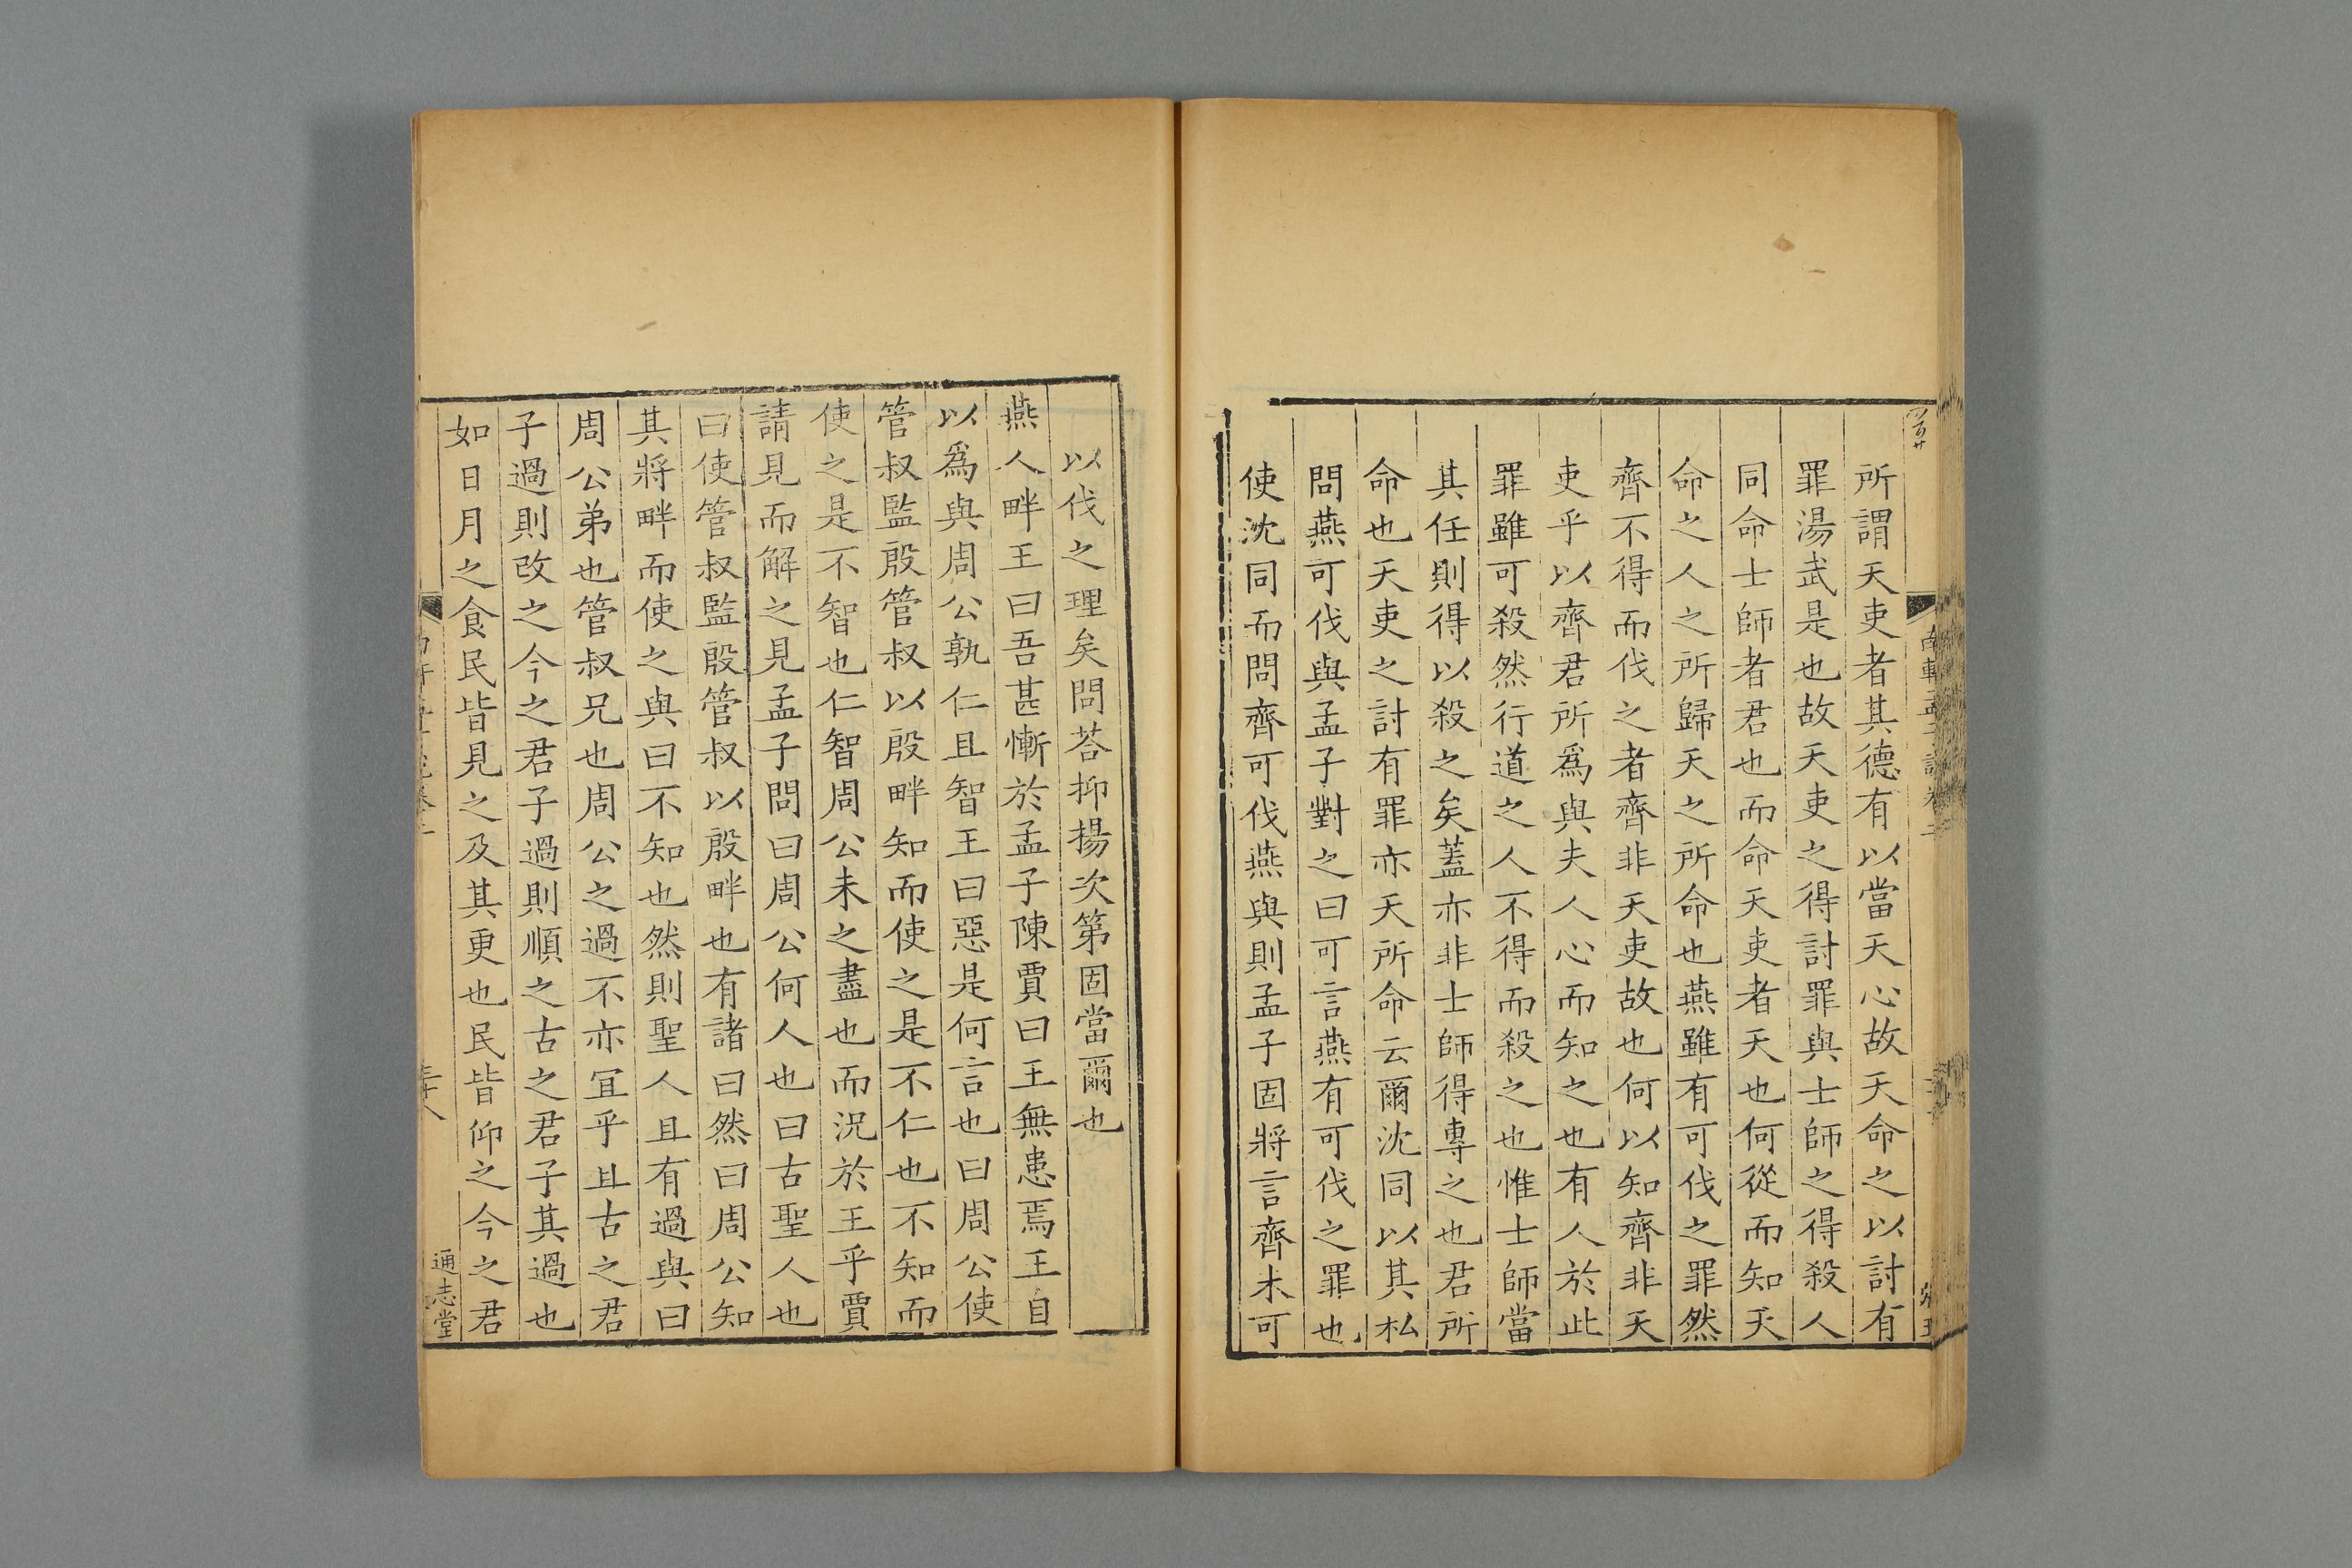 所謂天吏者其德有以當天心故天命之以討有
罪湯武是也故天吏之得討罪與士師之得殺人
同命士師者君也而命天吏者天也何從而知天
命之人之所歸天之所命也燕雖有可伐之罪然
齊不得而伐之者齊非天吏故也何以知齊非天
吏乎以齊君所爲與夫人心而知之也有人於此
罪雖可殺然行道之人不得而殺之也惟士師當
其任則得以殺之矣蓋亦非士師得專之也君所
命也天吏之討有罪亦天所命云爾沈同以其私
問燕可伐與孟子對之曰可言燕有可伐之罪也
使沈同而問齊可伐燕與則孟子固將言齊未可
以伐之理矣問荅抑揚次第固當爾也
燕人畔王曰吾甚慚於孟子陳賈曰王無患焉王自
以爲與周公孰仁且智王曰惡是何言也曰周公使
管叔監殷管叔以殷畔知而使之是不仁也不知而
使之是不智也仁智周公未之盡也而況於王乎賈
請見而解之見孟子問曰周公何人也曰古聖人也
曰使管叔監殷管叔以殷畔也有諸曰然曰周公知
其將畔而使之與曰不知也然則聖人且有過與曰
周公弟也管叔兄也周公之過不亦宜乎且古之君
子過則改之今之君子過則順之古之君子其過也
如日月之食民皆見之及其更也民皆仰之今之君
通志堂